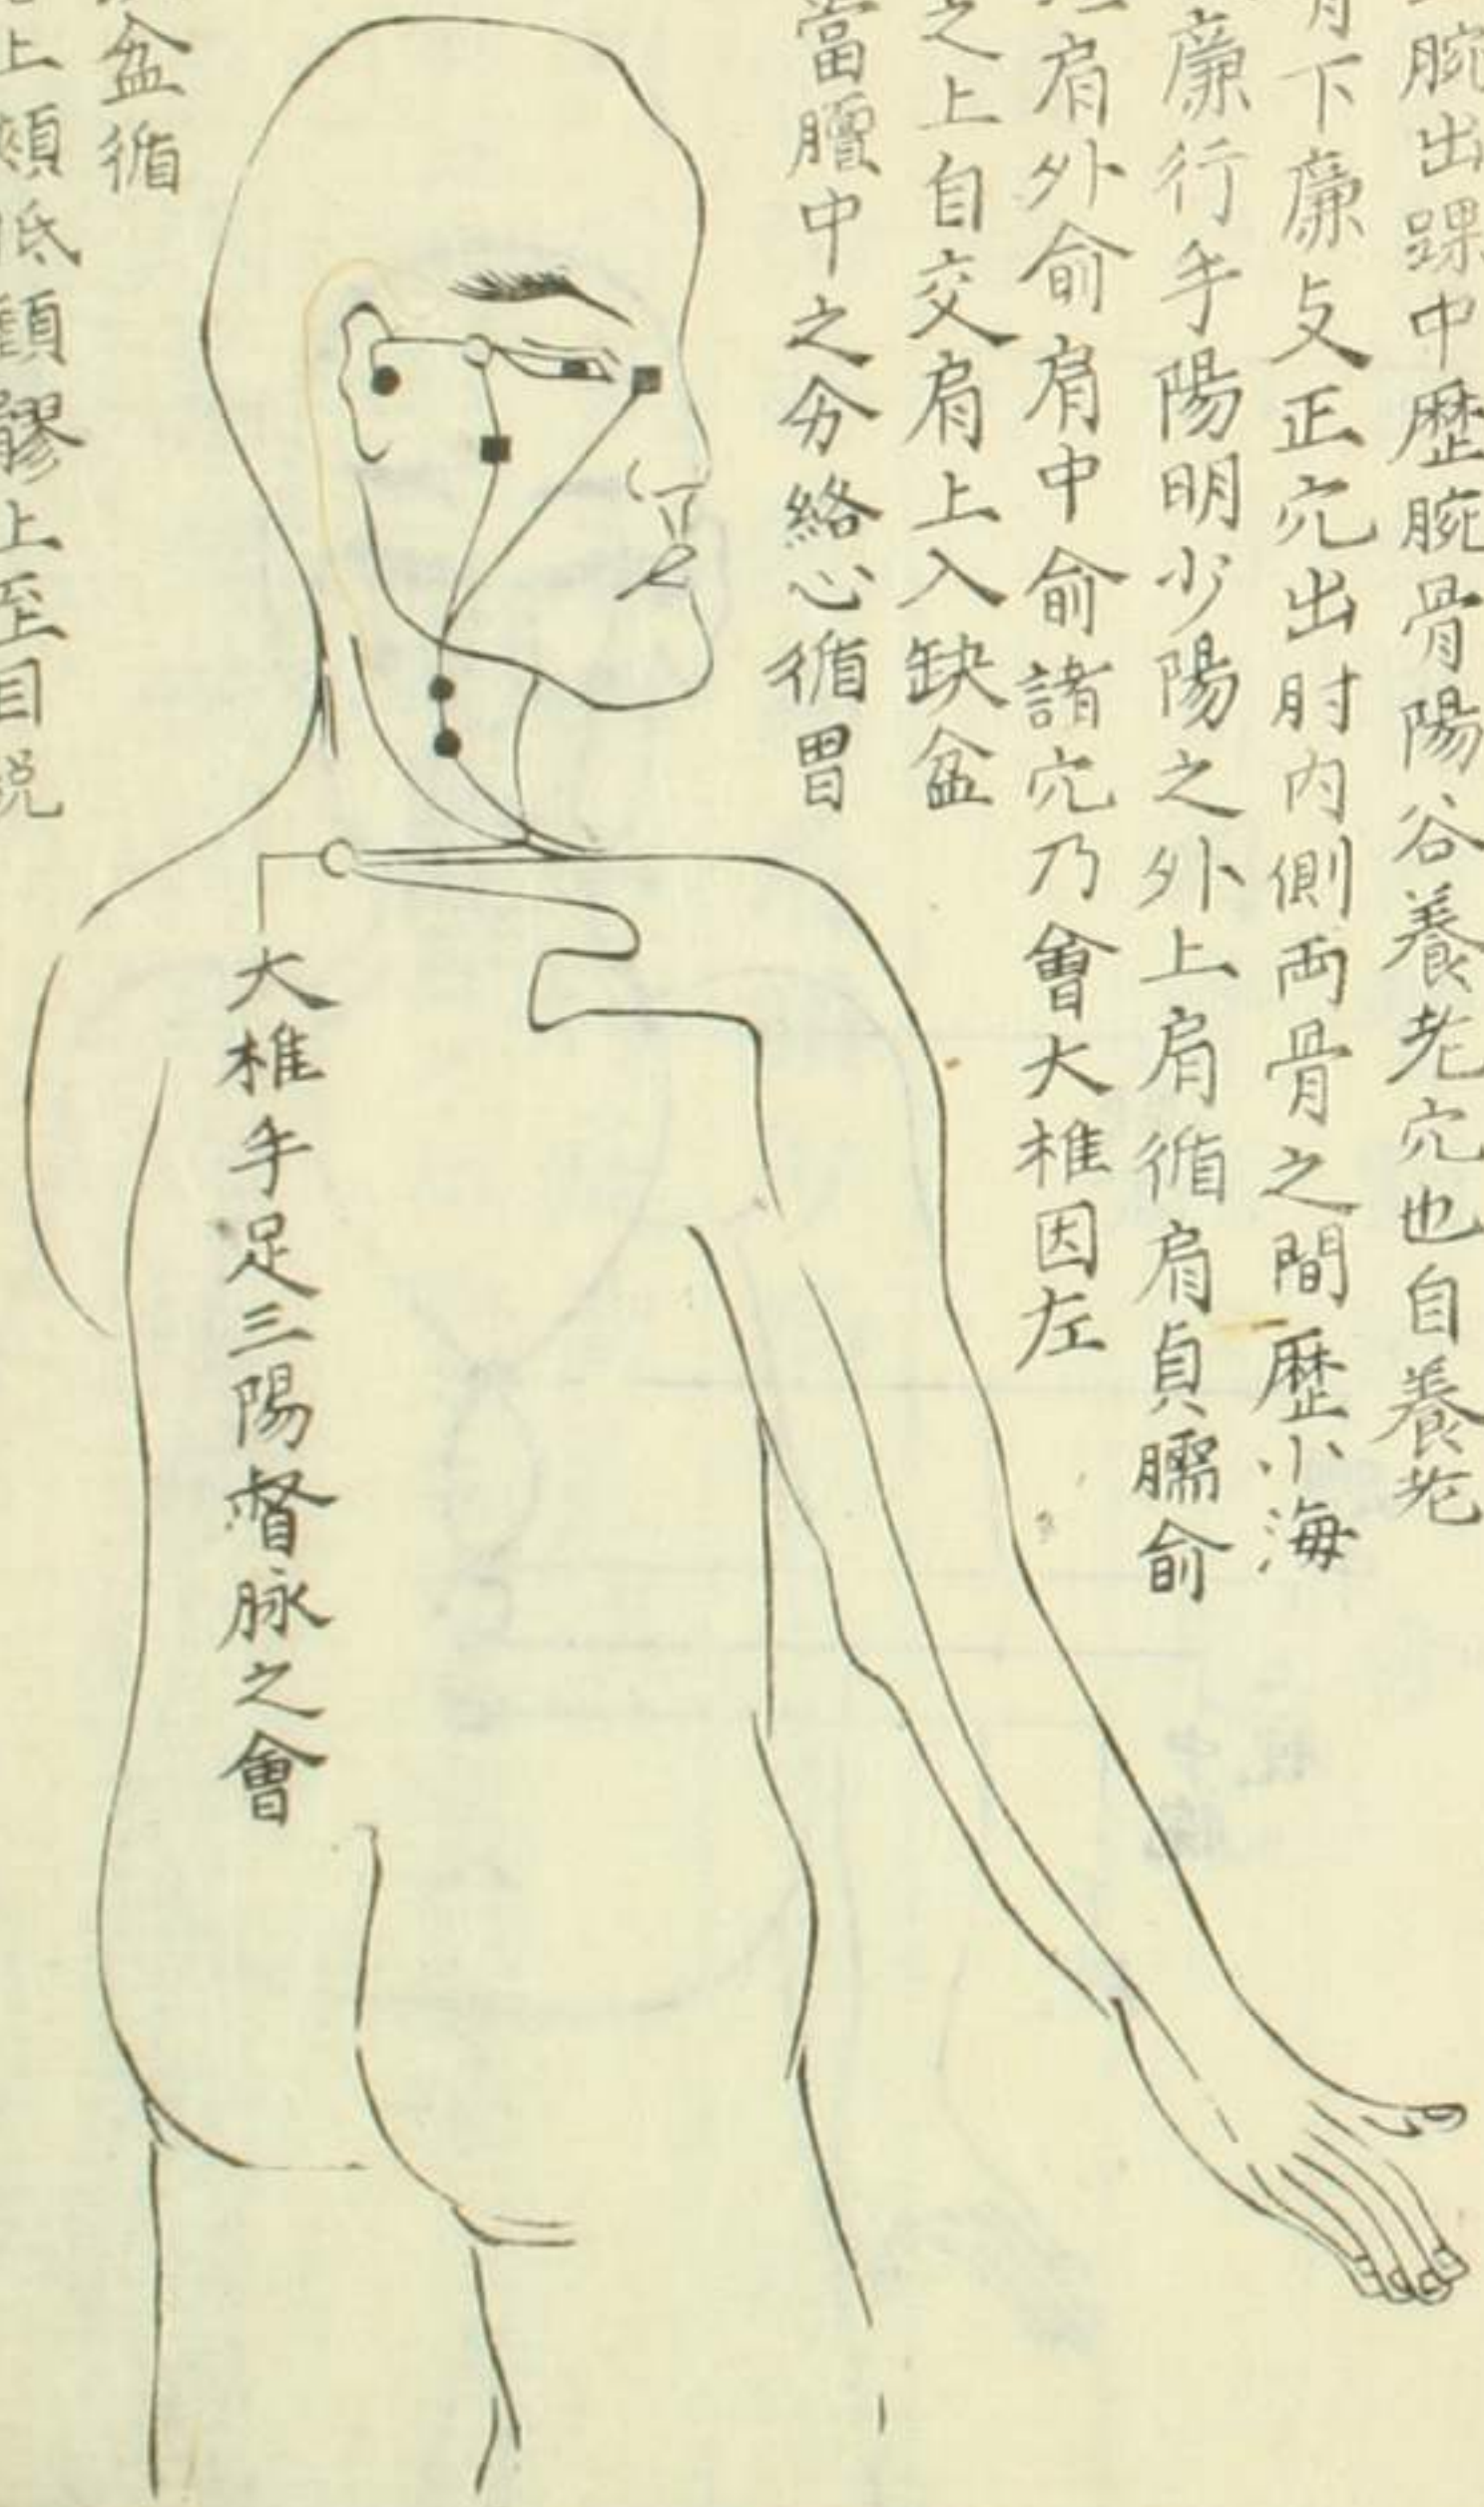 腕出踝中歷腕骨陽谷養老穴也自養老
下廉与正穴出肘内側両骨之間歷小海
廉行手陽明少陽之外上肩循肩貞臑俞
肩外俞肩中俞諸穴乃會大椎因左
之上自交肩上入缺盆
當膻中之分絡心循胃
大椎手足三陽督脉之會
盆循
上頰抵顴髎上至目锐